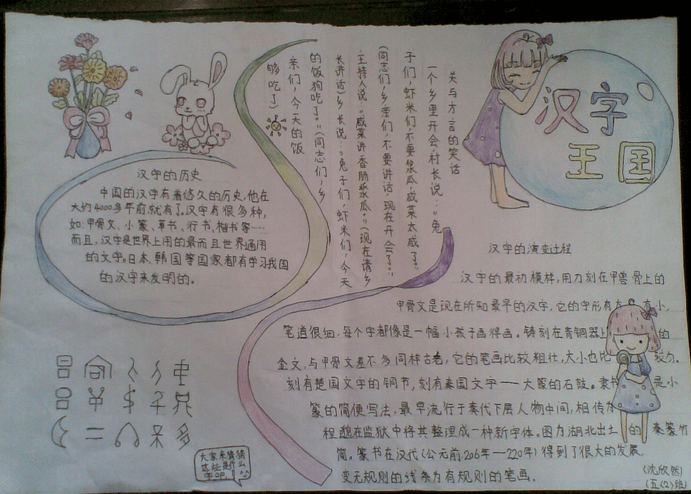 汉字
王国
关与方言的笑话
一个乡里开会,村长说:“兔
子们,虾米们,不要浆瓜,咸菜太咸了!”
(同志们,乡亲们,不要讲话,现在开会了。)
主持人说:“咸菜请香肠浆瓜。”(现在请乡
长讲话)乡长说:“兔子们,虾米们,今天
的饭狗吃了。”(同志们,乡
亲们,今天的饭
够吃了)
汉字的历史
中国的汉字有着悠久的历史,他在
大约4000多年前就有了,汉字有很多种,
如:甲骨文、小篆、草书、行书、楷书等…
而且,汉字是世界上用的最而且世界通用
的文字,日本、韩国等国家都有学习我国
的汉字来发明的。
汉字的演变过程
汉字的最初模样,用刀刻在甲兽骨上的
甲骨文是现在所知最早的汉字,它的字形有大有小,
笔道很细,每个字都像是一幅小孩子画得画。铸刻在青铜器上的
金文,与甲骨文差不多同样古老,它的笔画比较粗壮,大小也比较匀。
刻有楚国文字的铜节,刻有秦国文字——大篆的石鼓。隶书是小
篆的简便写法,最早流行于秦代下层人物中间,相传
程邈在监狱中将其整理成一种新字体。图为湖北出土的秦篆竹
简。篆书在汉代(公元前206年—220年)得到了很大的发展
变无规则的线条为有规则的笔画。
大家来猜猜
这些是什么
字吧
(沈欣然)
(五(2)班)